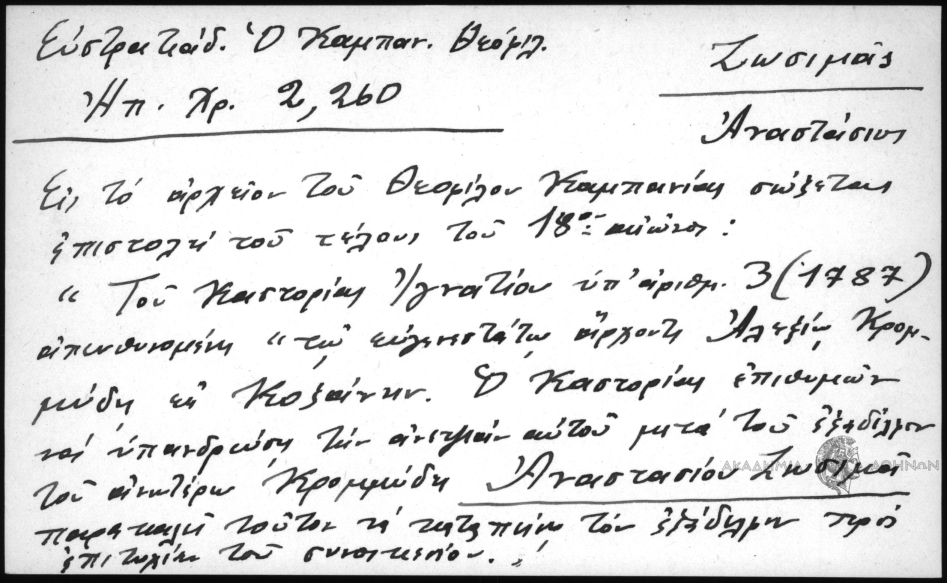 Εὐστρατιάδ. Ὁ Καμπαν. Θεόφιλ.
Ζωσιμᾶς
Ἠπ. Χρ. 2, 260
Ἀναστάσιος
Εἰς τό ἀρχεῖον τοῦ Θεοφίλου Καμπανίας σώζεται
ἐπιστολή τοῦ τέλους τοῦ 18ου αἰῶνος:
“ Τοῦ Καστορίας Ἰγνατίου ὑπ’ ἀριθμ. 3 (1787)
ἀπευθυνομένη “τῷ εὐγενεστάτῳ ἄρχοντι Ἀλεξίῳ Κρομ-
μύδῃ εἰς Κοζάνην. Ὁ Καστορίας ἐπιθυμῶν
νά ὑπανδρεύσῃ τήν ἀνεψιάν αὐτοῦ μετά τοῦ ἐξαδέλφου
τοῦ ἀνωτέρω Κρομμύδη Ἀναστασίου Ζωσιμᾶ
ΑΚΑΔΗΜΙΑ ΑΘΗΝΩΝ
παρακαλεῖ τοῦτον νά καταπείσῃ τόν ἐξάδελφον πρός
ἐπιτυχίαν τοῦ συνοικεσίου.